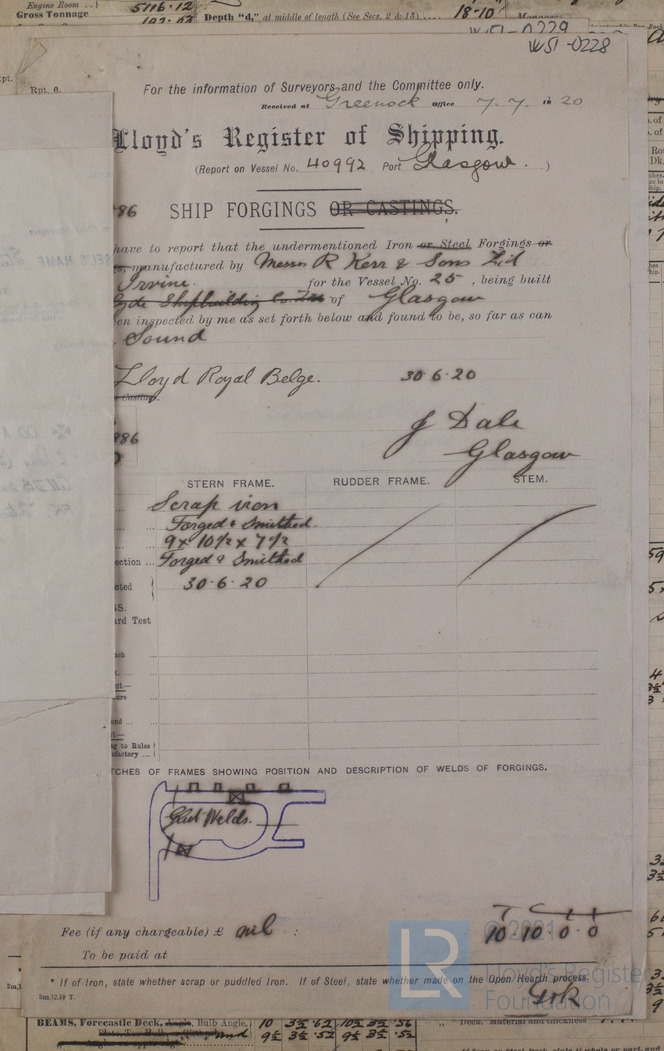 Engine Room
5116.12
Gross Tonnage
Depth "d," at middle of length (See Secs. 2 & 13)
18.10
WS1-0229
WS1-0228
Rpt. 6.
For the information of Surveyors and the Committee only.
Received at Greenock Office 7.7.1920
Lloyd's Register of Shipping.
(Report on Vessel No. 40992 Port Glasgow.)
986
SHIP FORGINGS OR CASTINGS.
have to report that the undermentioned Iron or Steel Forgings or
manufactured by Messrs R Kerr & Sons Ltd
Irvine. for the Vessel No. 25, being built
Clyde Shipbuilding Co. Ltd of Glasgow
inspected by me as set forth below and found to be, so far as can
Sound
Lloyd Royal Belge. 30.6.20
986
J Dale
Glasgow
STERN FRAME. RUDDER FRAME. STEM.
Scrap iron
Forged & Smithed.
9 x 10 1/2 x 7 1/2
Forged & Smithed
30.6.20
TCHES OF FRAMES SHOWING POSITION AND DESCRIPTION OF WELDS OF FORGINGS.
Glut Welds.
T C
10 10 0 0
Fee (if any chargeable) £ nil :
To be paid at
* If of Iron, state whether scrap or puddled Iron. If of Steel, state whether made on the Open Hearth process.
LR
© 2021
Lloyd's Register
Foundation
BEAMS, Forecastle Deck, Angle, Bulb Angle,